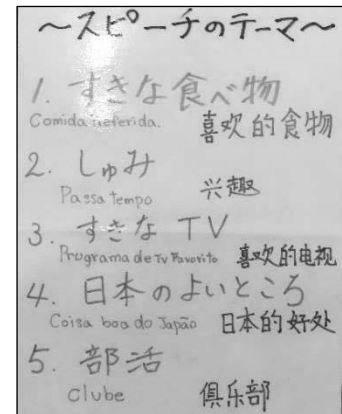 ～スピーチのテーマ～
1. すきな食べ物
Comida Referida.
喜欢的食物
2. しゅみ
Passa tempo
兴趣
3. すきな TV
Programa de TV Favorito
喜欢的电视
4. 日本のよいところ
Coisa boa do Japão
日本的好处
5. 部活
Clube
俱乐部